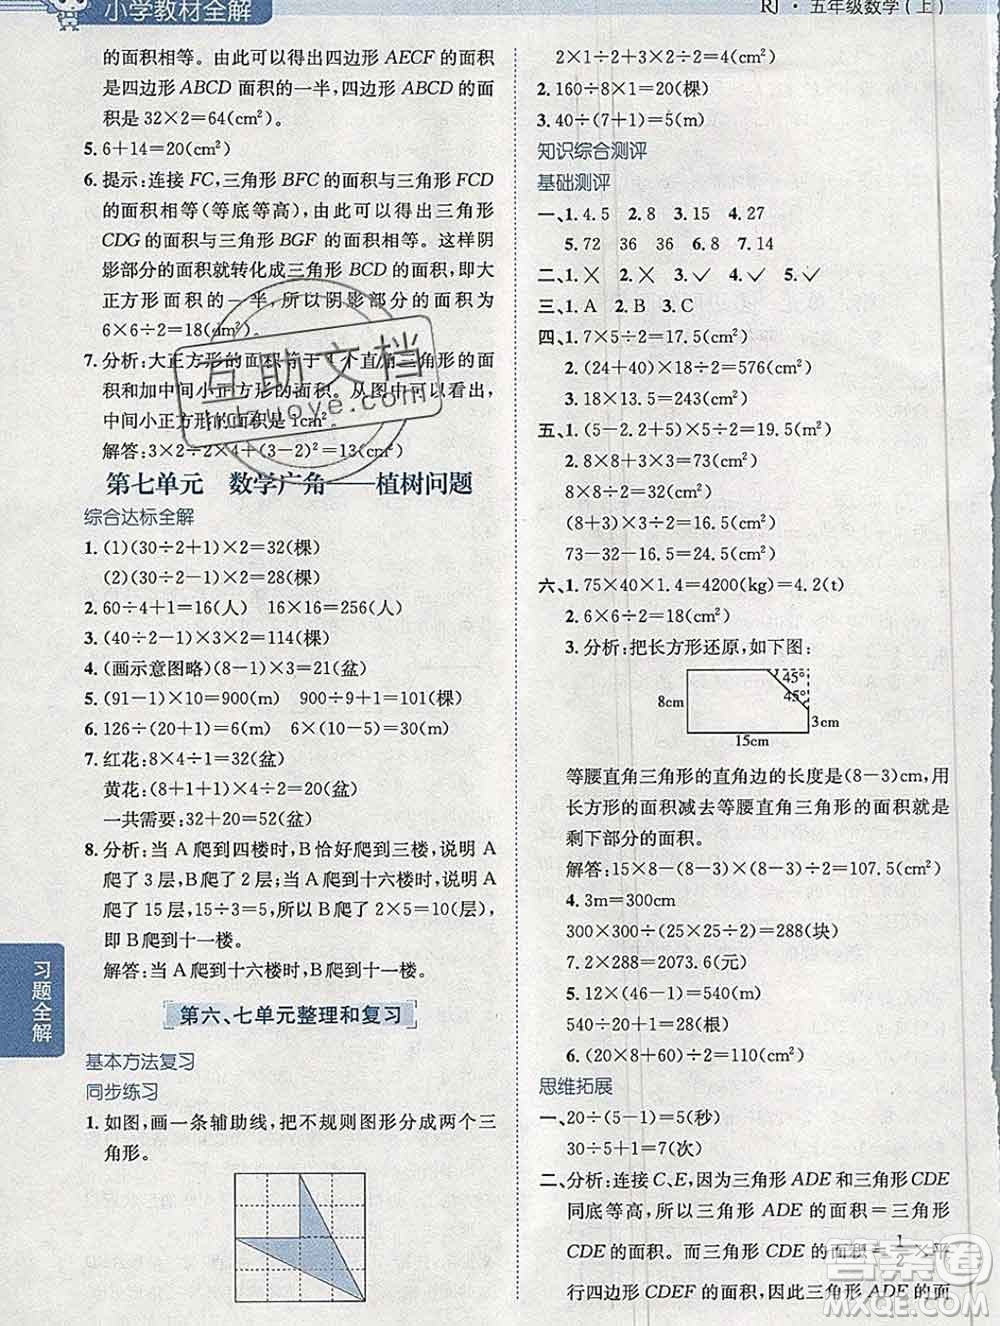 小学教材全解
RJ·五年级数学(上)
的面积相等。由此可以得出四边形 AECF 的面积
是四边形 ABCD 面积的一半,四边形 ABCD 的面
积是 32×2=64(cm²)。
5. 6+14=20(cm²)
6. 提示:连接 FC,三角形 BFC 的面积与三角形 FCD
的面积相等(等底等高),由此可以得出三角形
CDG 的面积与三角形 BGF 的面积相等。这样阴
影部分的面积就转化成三角形 BCD 的面积,即大
正方形面积的一半,所以阴影部分的面积为
6×6÷2=18(dm²)
7. 分析:大正方形的面积等于4个直角三角形的面
积和加中间小正方形的面积。从图中可以看出,
中间小正方形的面积是1cm²。
解答:3×2÷2×4+(3-2)²=13(cm²)
第七单元 数学广角——植树问题
综合达标全解
1. (1)(30÷2+1)×2=32(棵)
(2)(30÷2-1)×2=28(棵)
2. 60÷4+1=16(人) 16×16=256(人)
3. (40÷2-1)×6=114(棵)
4. (画示意图略)(8-1)×3=21(盆)
5. (91-1)×10=900(m) 900÷9+1=101(棵)
6. 126÷(20+1)=6(m) 6×(30-1)÷6=29(棵)
7. 红花:8×4÷1=32(盆)
黄花:(8×4÷1)×4÷2=20(盆)
一共需要:32+20=52(盆)
8. 分析:当 A 爬到四楼时,B 恰好爬到三楼,说明 A
爬了 3 层,B 爬了 2 层;当 A 爬到十六楼时,说明 A
爬了 15 层,15÷3=5,所以 B 爬了 2×5=10(层),
即 B 爬到十一楼。
解答:当 A 爬到十六楼时,B 爬到十一楼。
第六、七单元整理和复习
基本方法复习
同步练习
1. 如图,画一条辅助线,把不规则图形分成两个三
角形。
习题全解
2×1÷2+3×2÷2=4(cm²)
2. 160÷8×1=20(棵)
3. 40÷(7+1)=5(m)
知识综合测评
基础测评
一、1. 4.5 2. 8 3. 15 4. 27
5. 72 36 36 6. 8 7. 14
二、1. × 2. × 3. ✓ 4. ✓ 5. ✓
三、1. A 2. B 3. C
四、1. 7×5÷2=17.5(cm²)
2. (24+40)×18÷2=576(cm²)
3. 18×13.5=243(cm²)
五、1. (5-2.2+5)×5÷2=19.5(cm²)
2. 8×8+3×3=73(cm²)
8×8÷2=32(cm²)
(8+3)×3÷2=16.5(cm²)
73-32-16.5=24.5(cm²)
六、1. 75×40×1.4=4200(kg)=4.2(t)
2. 6×6÷2=18(cm²)
3. 分析:把长方形还原,如下图:
45°
45°
8cm
3cm
15cm
等腰直角三角形的直角边的长度是(8-3)cm,用
长方形的面积减去等腰直角三角形的面积就是
剩下部分的面积。
解答:15×8-(8-3)×(8-3)÷2=107.5(cm²)
4. 3m=300cm
300×300÷(25×25÷2)=288(块)
7.2×288=2073.6(元)
5. 1012×(9÷15-1)...